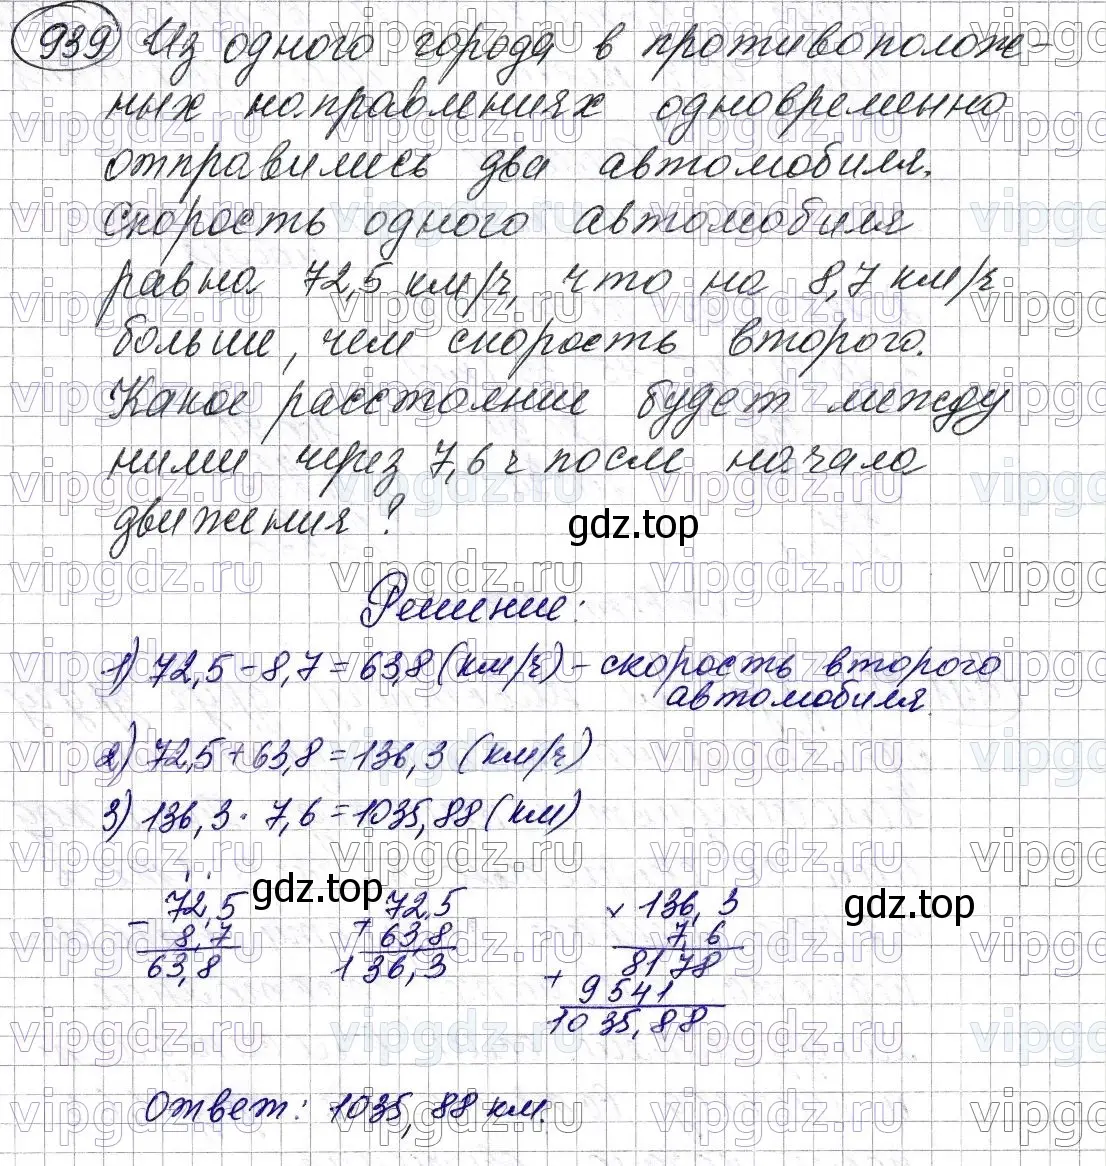 939 Из одного города в противополож-
ных направлениях одновременно
отправились два автомобиля.
Скорость одного автомобиля
равна 72,5 км/ч, что на 8,7 км/ч
больше, чем скорость второго.
Какое расстояние будет между
ними через 7,6 ч после начала
движения?
gdz.top
Решение:
1) 72,5 - 8,7 = 63,8 (км/ч) - скорость второго
автомобиля.
2) 72,5 + 63,8 = 136,3 (км/ч)
3) 136,3 · 7,6 = 1035,88 (км)
gdz.top
gdz.top
- 72,5
8,7
63,8
+ 72,5
63,8
136,3
× 136,3
7,6
8178
+ 9541
1035,88
Ответ: 1035,88 км.
vipgdz.ru